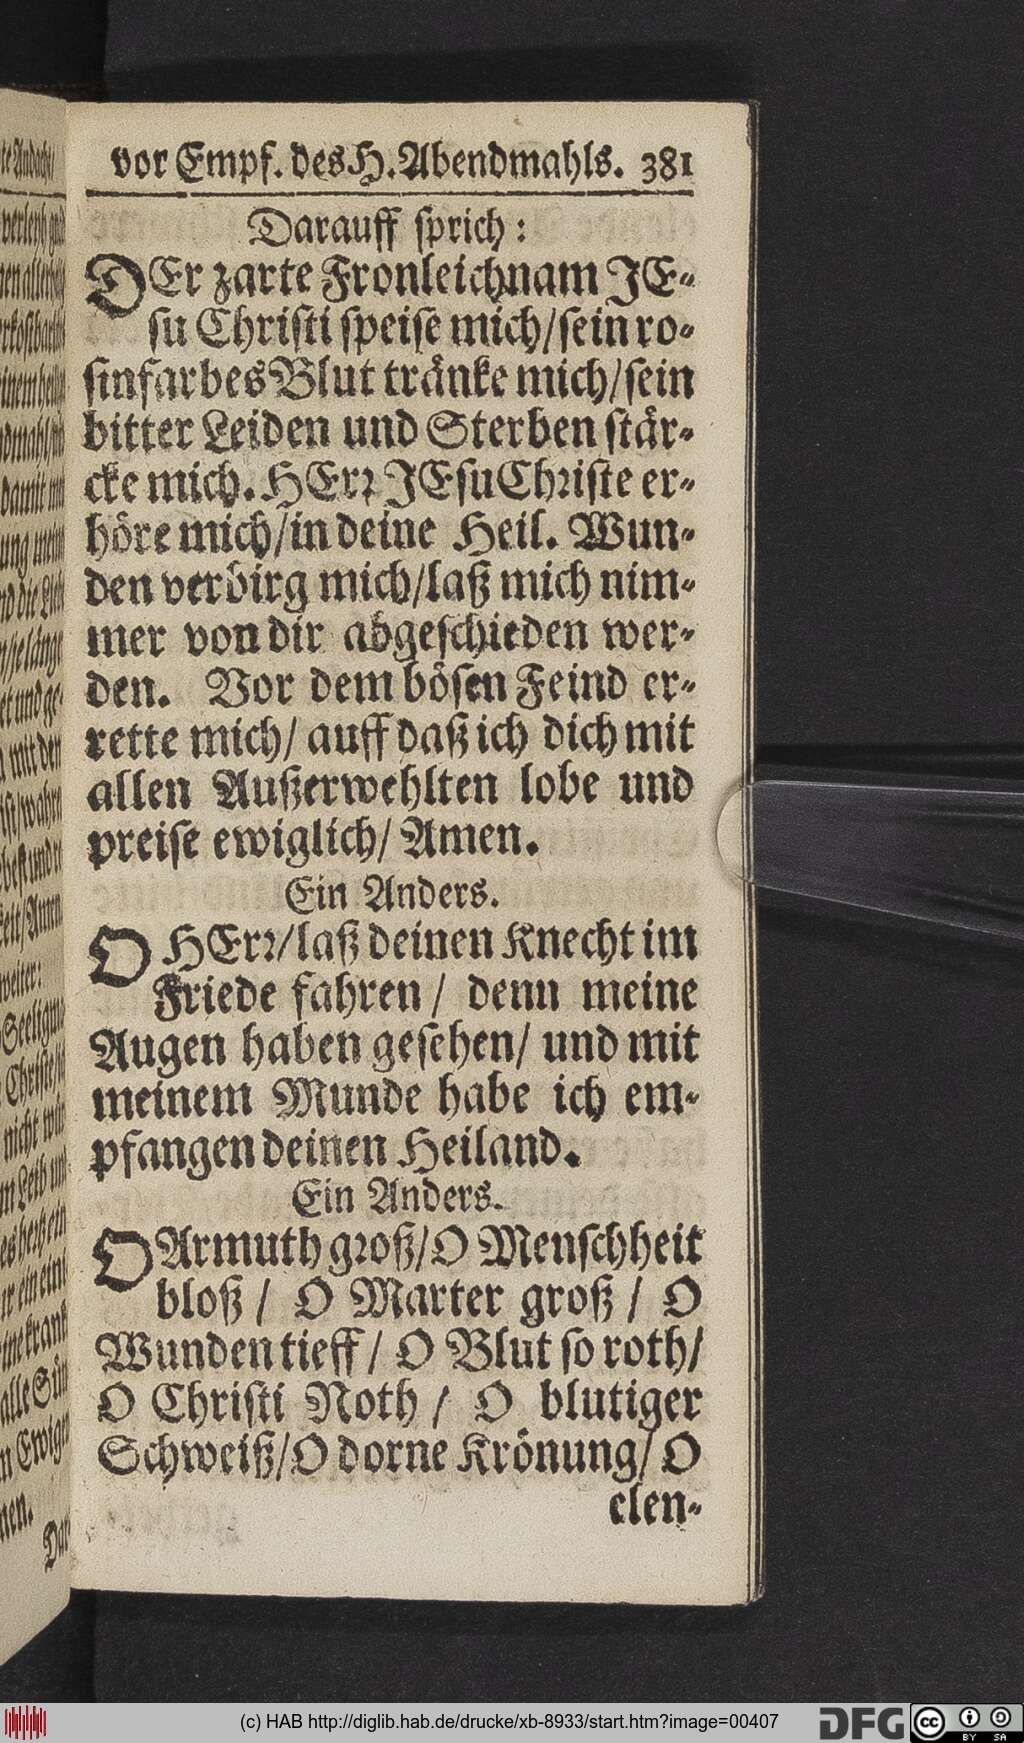 vor Empf. des H. Abendmahls. 381
Darauff sprich:
DEr zarte Fronleichnam JE-
su Christi speise mich/sein ro-
sinfarbes Blut tränke mich/sein
bitter Leiden und Sterben stär-
cke mich. HErr JEsu Christe er-
höre mich/in deine Heil. Wun-
den verbirg mich/laß mich nim-
mer von dir abgeschieden wer-
den. Vor dem bösen Feind er-
rette mich/ auff daß ich dich mit
allen Außerwehlten lobe und
preise ewiglich/ Amen.
Ein Anders.
O HErr/laß deinen Knecht im
Friede fahren/ denn meine
Augen haben gesehen/ und mit
meinem Munde habe ich em-
pfangen deinen Heiland.
Ein Anders.
O Armuth groß/O Menschheit
bloß / O Marter groß / O
Wunden tieff / O Blut so roth/
O Christi Noth / O blutiger
Schweiß/O dorne Krönung/ O
elen-
(c) HAB http://diglib.hab.de/drucke/xb-8933/start.htm?image=00407
DFG
cc
BY SA